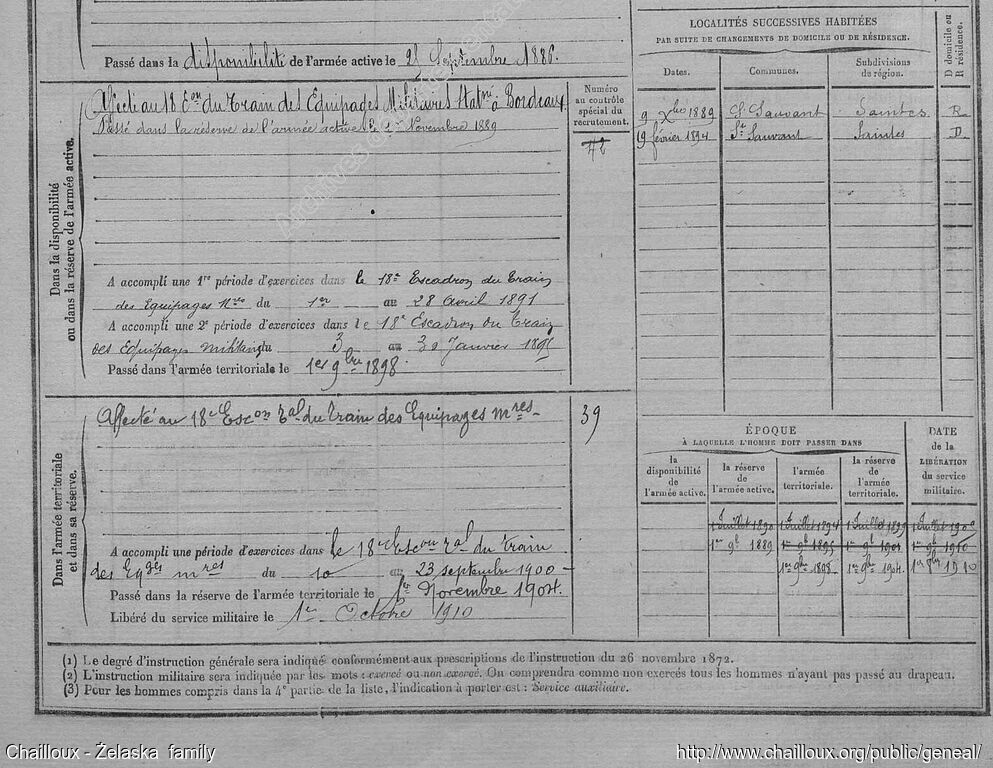 Passé dans la disponibilité de l'armée active le 21 Septembre 1886.
Dans la disponibilité
ou dans la réserve de l'armée active.
Affecté au 18 Eon du Train des Équipages Militaires Statné à Bordeaux
Passé dans la réserve de l'armée active le 1er Novembre 1889
A accompli une 1re période d'exercices dans le 18e Escadron du Train
des Equipages Mres du 1er au 28 Avril 1891
A accompli une 2e période d'exercices dans le 18e Escadron du Train
des Equipages militaires du 3 au 30 Janvier 1895
Passé dans l'armée territoriale le 1er 9bre 1898.
Numéro
au contrôle
spécial du
recrutement.
Dans l'armée territoriale
et dans sa réserve.
Affecté au 18e Escon Ral du Train des Equipages mres
39
A accompli une période d'exercices dans le 18e Escon Ral du Train
des Eqges mres du 10 au 23 septembre 1900
Passé dans la réserve de l'armée territoriale le 1er Novembre 1904.
Libéré du service militaire le 1er Octobre 1910
LOCALITÉS SUCCESSIVES HABITÉES
PAR SUITE DE CHANGEMENTS DE DOMICILE OU DE RÉSIDENCE.
D domicile ou
R résidence.
Dates. Communes. Subdivisions
de région.
9 Xbre 1889 St Sauvant Saintes R
19 février 1894 St Sauvant Saintes D
ÉPOQUE
À LAQUELLE L'HOMME DOIT PASSER DANS
DATE
de la
LIBÉRATION
du service
militaire.
la
disponibilité
de
l'armée active.
la réserve
de
l'armée active.
l'armée
territoriale.
la réserve
de
l'armée
territoriale.
1 Juillet 1890 1 Juillet 1894 1 Juillet 1899 1 Juillet 1900
1er 9b 1889 1er 9b 1895 1er 9b 1901 1er 9b 1910
1er 9bre 1898. 1er 9bre 1904. 1er 9bre 1910
(1) Le degré d'instruction générale sera indiqué conformément aux prescriptions de l'instruction du 26 novembre 1872.
(2) L'instruction militaire sera indiquée par les mots : exercé ou non exercé. On comprendra comme non exercés tous les hommes n'ayant pas passé au drapeau.
(3) Pour les hommes compris dans la 4e partie de la liste, l'indication à porter est : Service auxiliaire.
Chailloux - Żelaska family
http://www.chailloux.org/public/geneal/